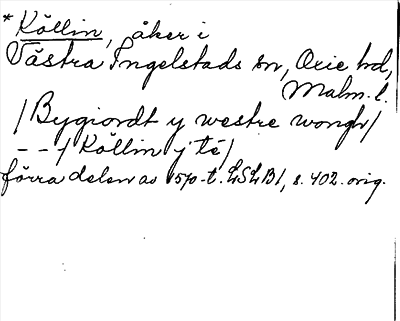 * Köllin, åker i
Västra Ingelstads sn, Oxie hd,
Malm. l.
/Bygiordt y westre wongh/
- - / Köllin j té/
förra delen av 1570-t. LSLB1, s. 402. orig.